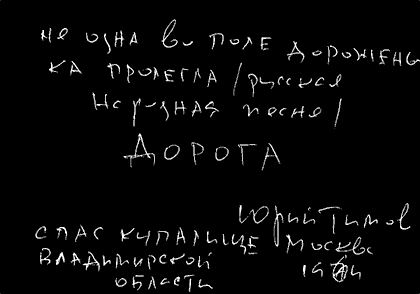 не одна во поле дорожень
ка пролегла /русская
народная песня/
ДОРОГА
Юрий Тимов
СПАС КУПАЛИЩЕ Москва
ВЛАДИМИРСКОЙ
ОБЛАСТИ